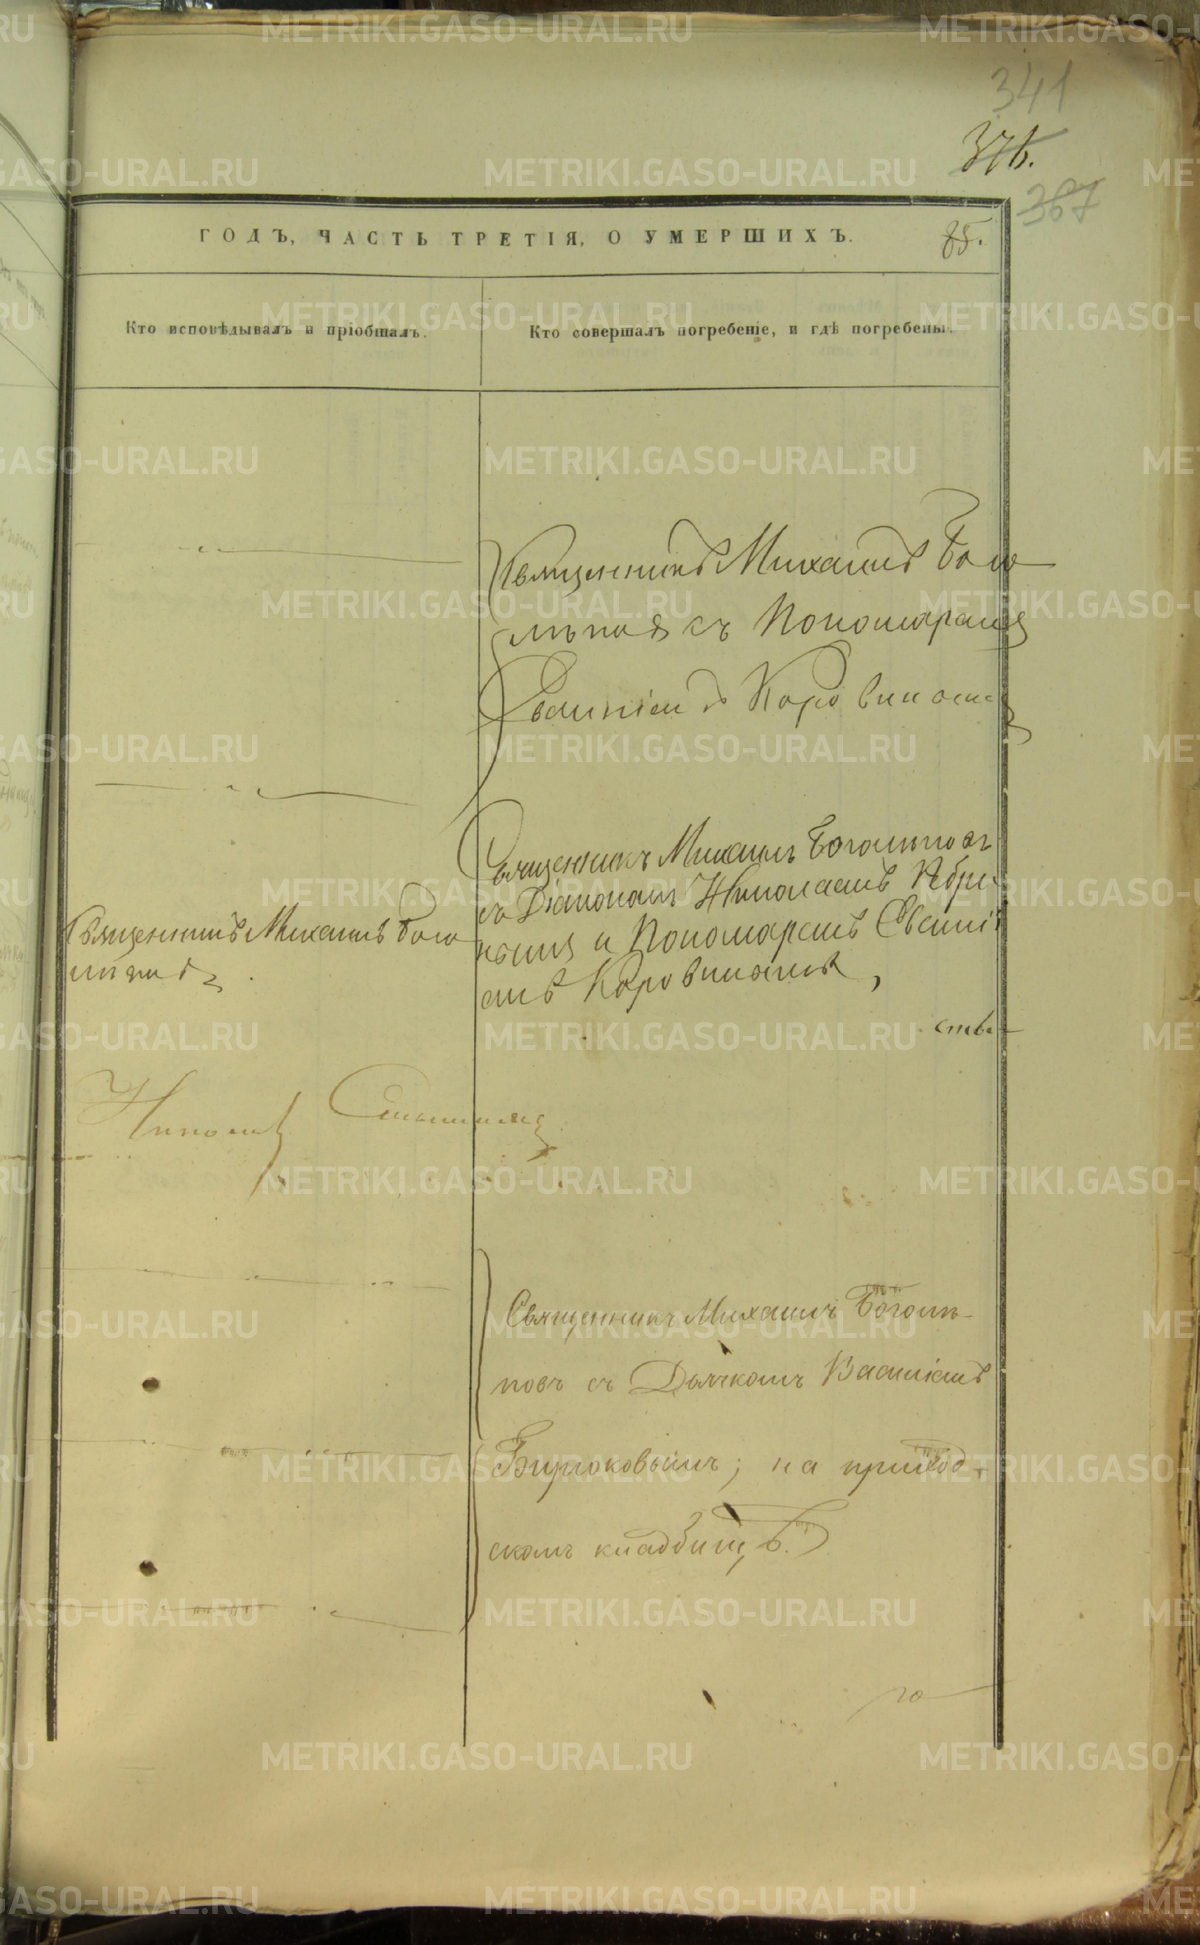 341
376.
367
ГОДЪ, ЧАСТЬ ТРЕТІЯ, О УМЕРШИХЪ.
85.
Кто исповѣдывалъ и пріобщалъ.
Кто совершалъ погребеніе, и гдѣ погребены.
Священникъ Михаилъ Бого
лѣповъ съ Пономаремъ
Евгеніемъ Коровинымъ
Священникъ Михаилъ Боголѣповъ
съ Діакономъ Николаемъ
и Пономаремъ Евгені
емъ Коровинымъ,
Священникъ Михаилъ Бого
лѣповъ.
ства
Николай
Священникъ Михаилъ Боголѣ-
повъ съ Дьячкомъ Василіемъ
Бирюковымъ; на приход-
скомъ кладбищѣ.
го
METRIKI.GASO-URAL.RU